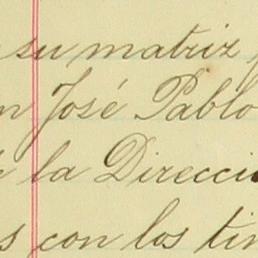 su matriz
n José Pablo
la Direcci
s con los tin